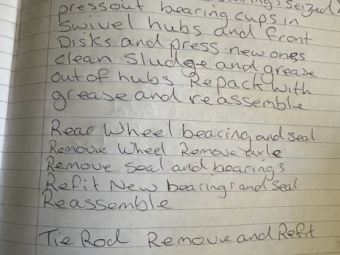 seized
press out bearing cups in
Swivel hubs and front
Disks and press new ones
clean Sludge and grease
out of hubs Repack with
grease and reassemble
Rear Wheel bearing and seal
Remove Wheel Remove axle
Remove seal and bearings
Refit New bearings and seal
Reassemble
Tie Rod Remove and Refit